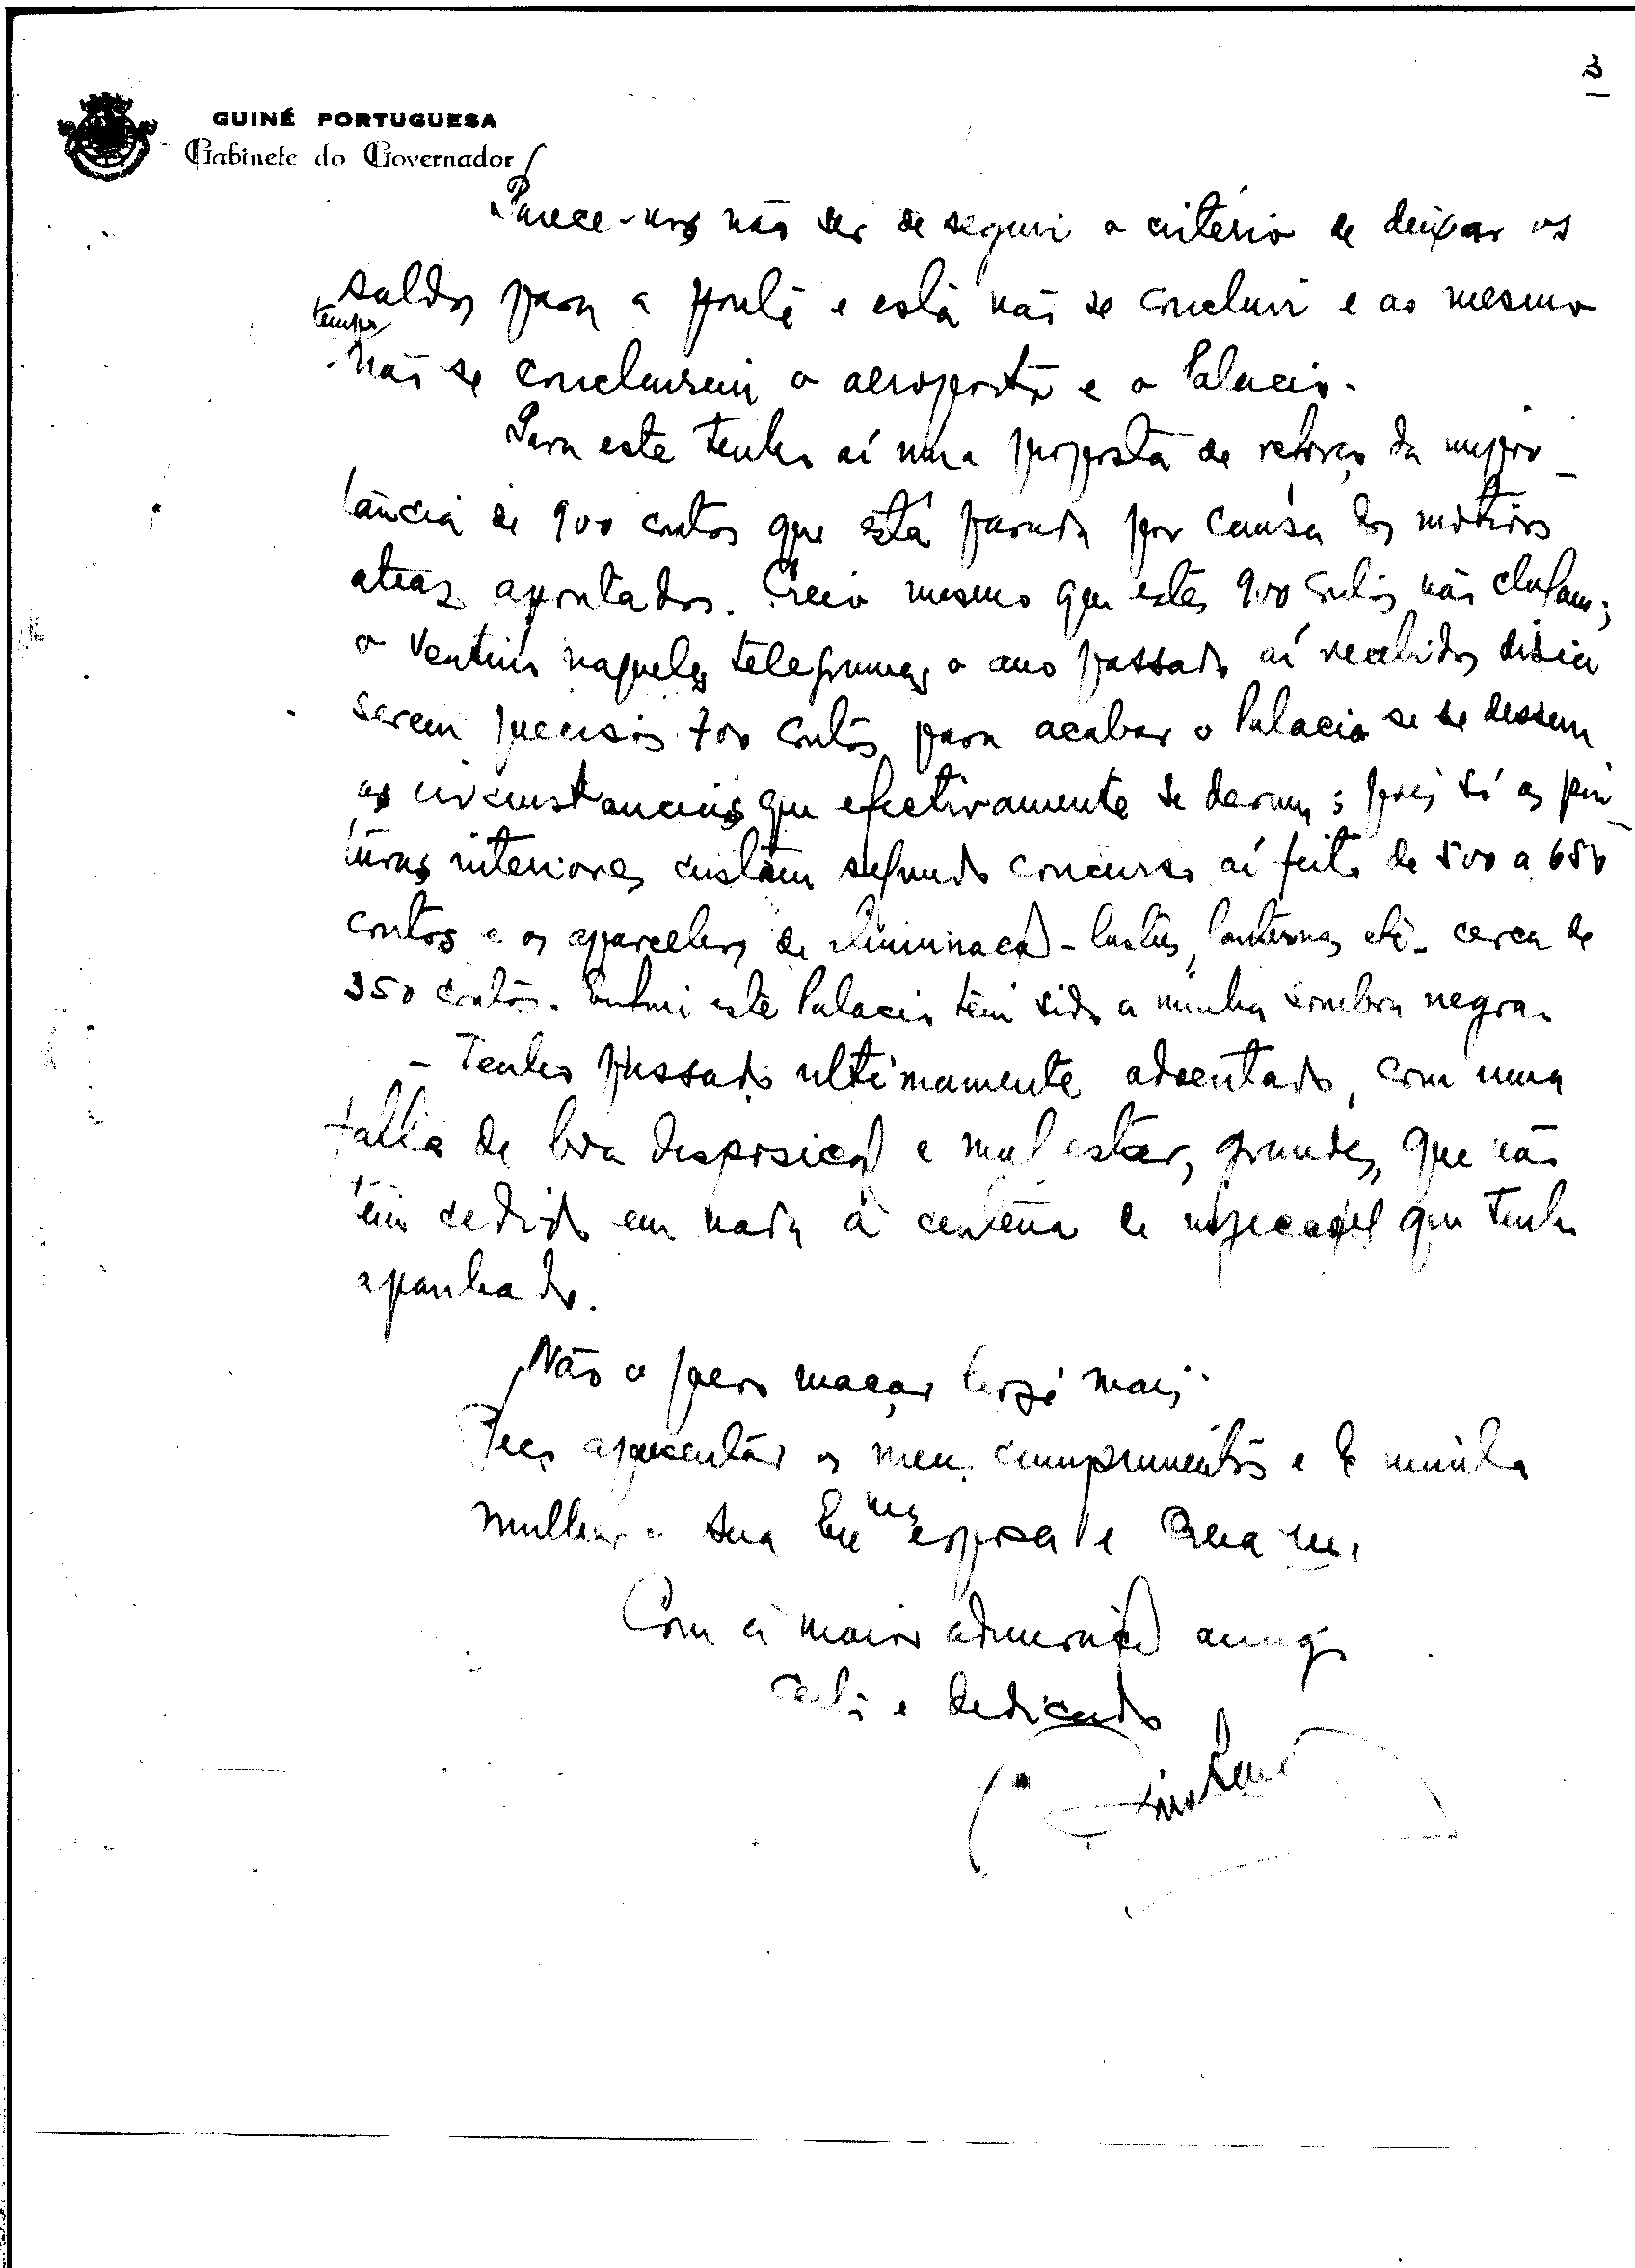 3
GUINÉ PORTUGUESA
Gabinete do Governador
Parece-nos não ser de seguir o critério de deixar os
saldos para a ponte e esta não se concluir e ao mesmo
tempo
não se concluirem o aeroporto e o Palacio.
Para este tenho aí uma proposta de reforço da impor-
tância de 900 contos que está parada por causa dos motivos
atraz apontados. Creio mesmo que estes 900 contos não chegam;
o Ventura naqueles telegramas o ano passado aí recebidos disia
serem precisos 700 contos para acabar o Palacio se se dessem
as circunstancias que efectivamente se deram; pois só as pin-
turas interiores custam segundo concurso aí feito de 500 a 650
contos e os aparelhos de iluminação - lustres, lanternas etc. cerca de
350 contos. Enfim este Palacio tem sido a minha sombra negra.
- Tenho passado ultimamente adoentado, com uma
falta de boa disposição e mal estar, grandes, que não
tem cedido em nada á centena de injecções que tenho
apanhado.
Não o quero maçar hoje mais.
Peço apresentar os meus cumprimentos e de minha
mulher a sua Exma esposa e
Com a maior admiração amigo
certo e dedicado